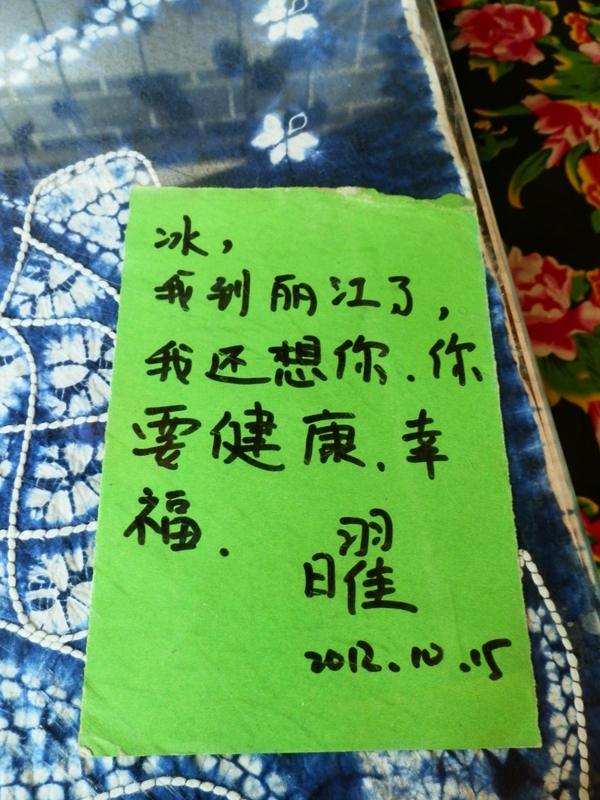 冰，
我到丽江了，
我还想你.你
要健康.幸
福.
曜
2012.10.15